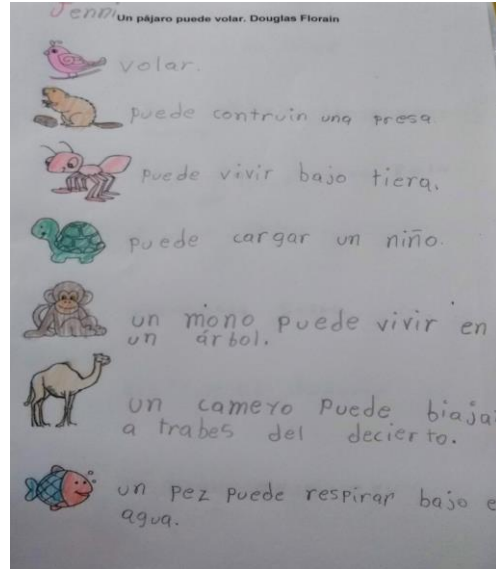 Jenni
Un pájaro puede volar. Douglas Florain
volar.
puede contruin una presa.
puede vivir bajo tiera.
puede cargar un niño.
un mono puede vivir en
un árbol.
un cameyo puede biaja
a trabes del decierto.
un pez puede respirar bajo e
agua.